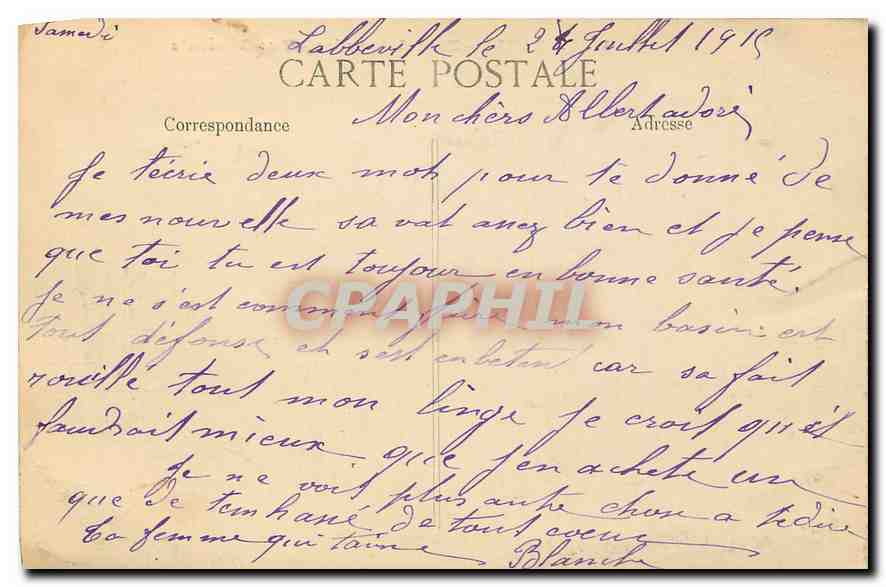 Samedi
Labbeville le 24 Juillet 1915
CARTE POSTALE
Mon chèrs Albert adoré
Correspondance
Adresse
Je técrie deux mots pour te donné de
mes nouvelle sa vat assez bien et je pense
que toi tu est toujour en bonne santé.
Je ne s'est comment faire mon basin est
tout défonse et sest enbetan car sa fait
rouillé tout mon linge Je croit qu'il
faudrait mieux que j'en achete un
Je ne voit plus autre chose a te dire
que de tembrassé de tout coeur
Ta femme qui taime
Blanche
CPAPHIL